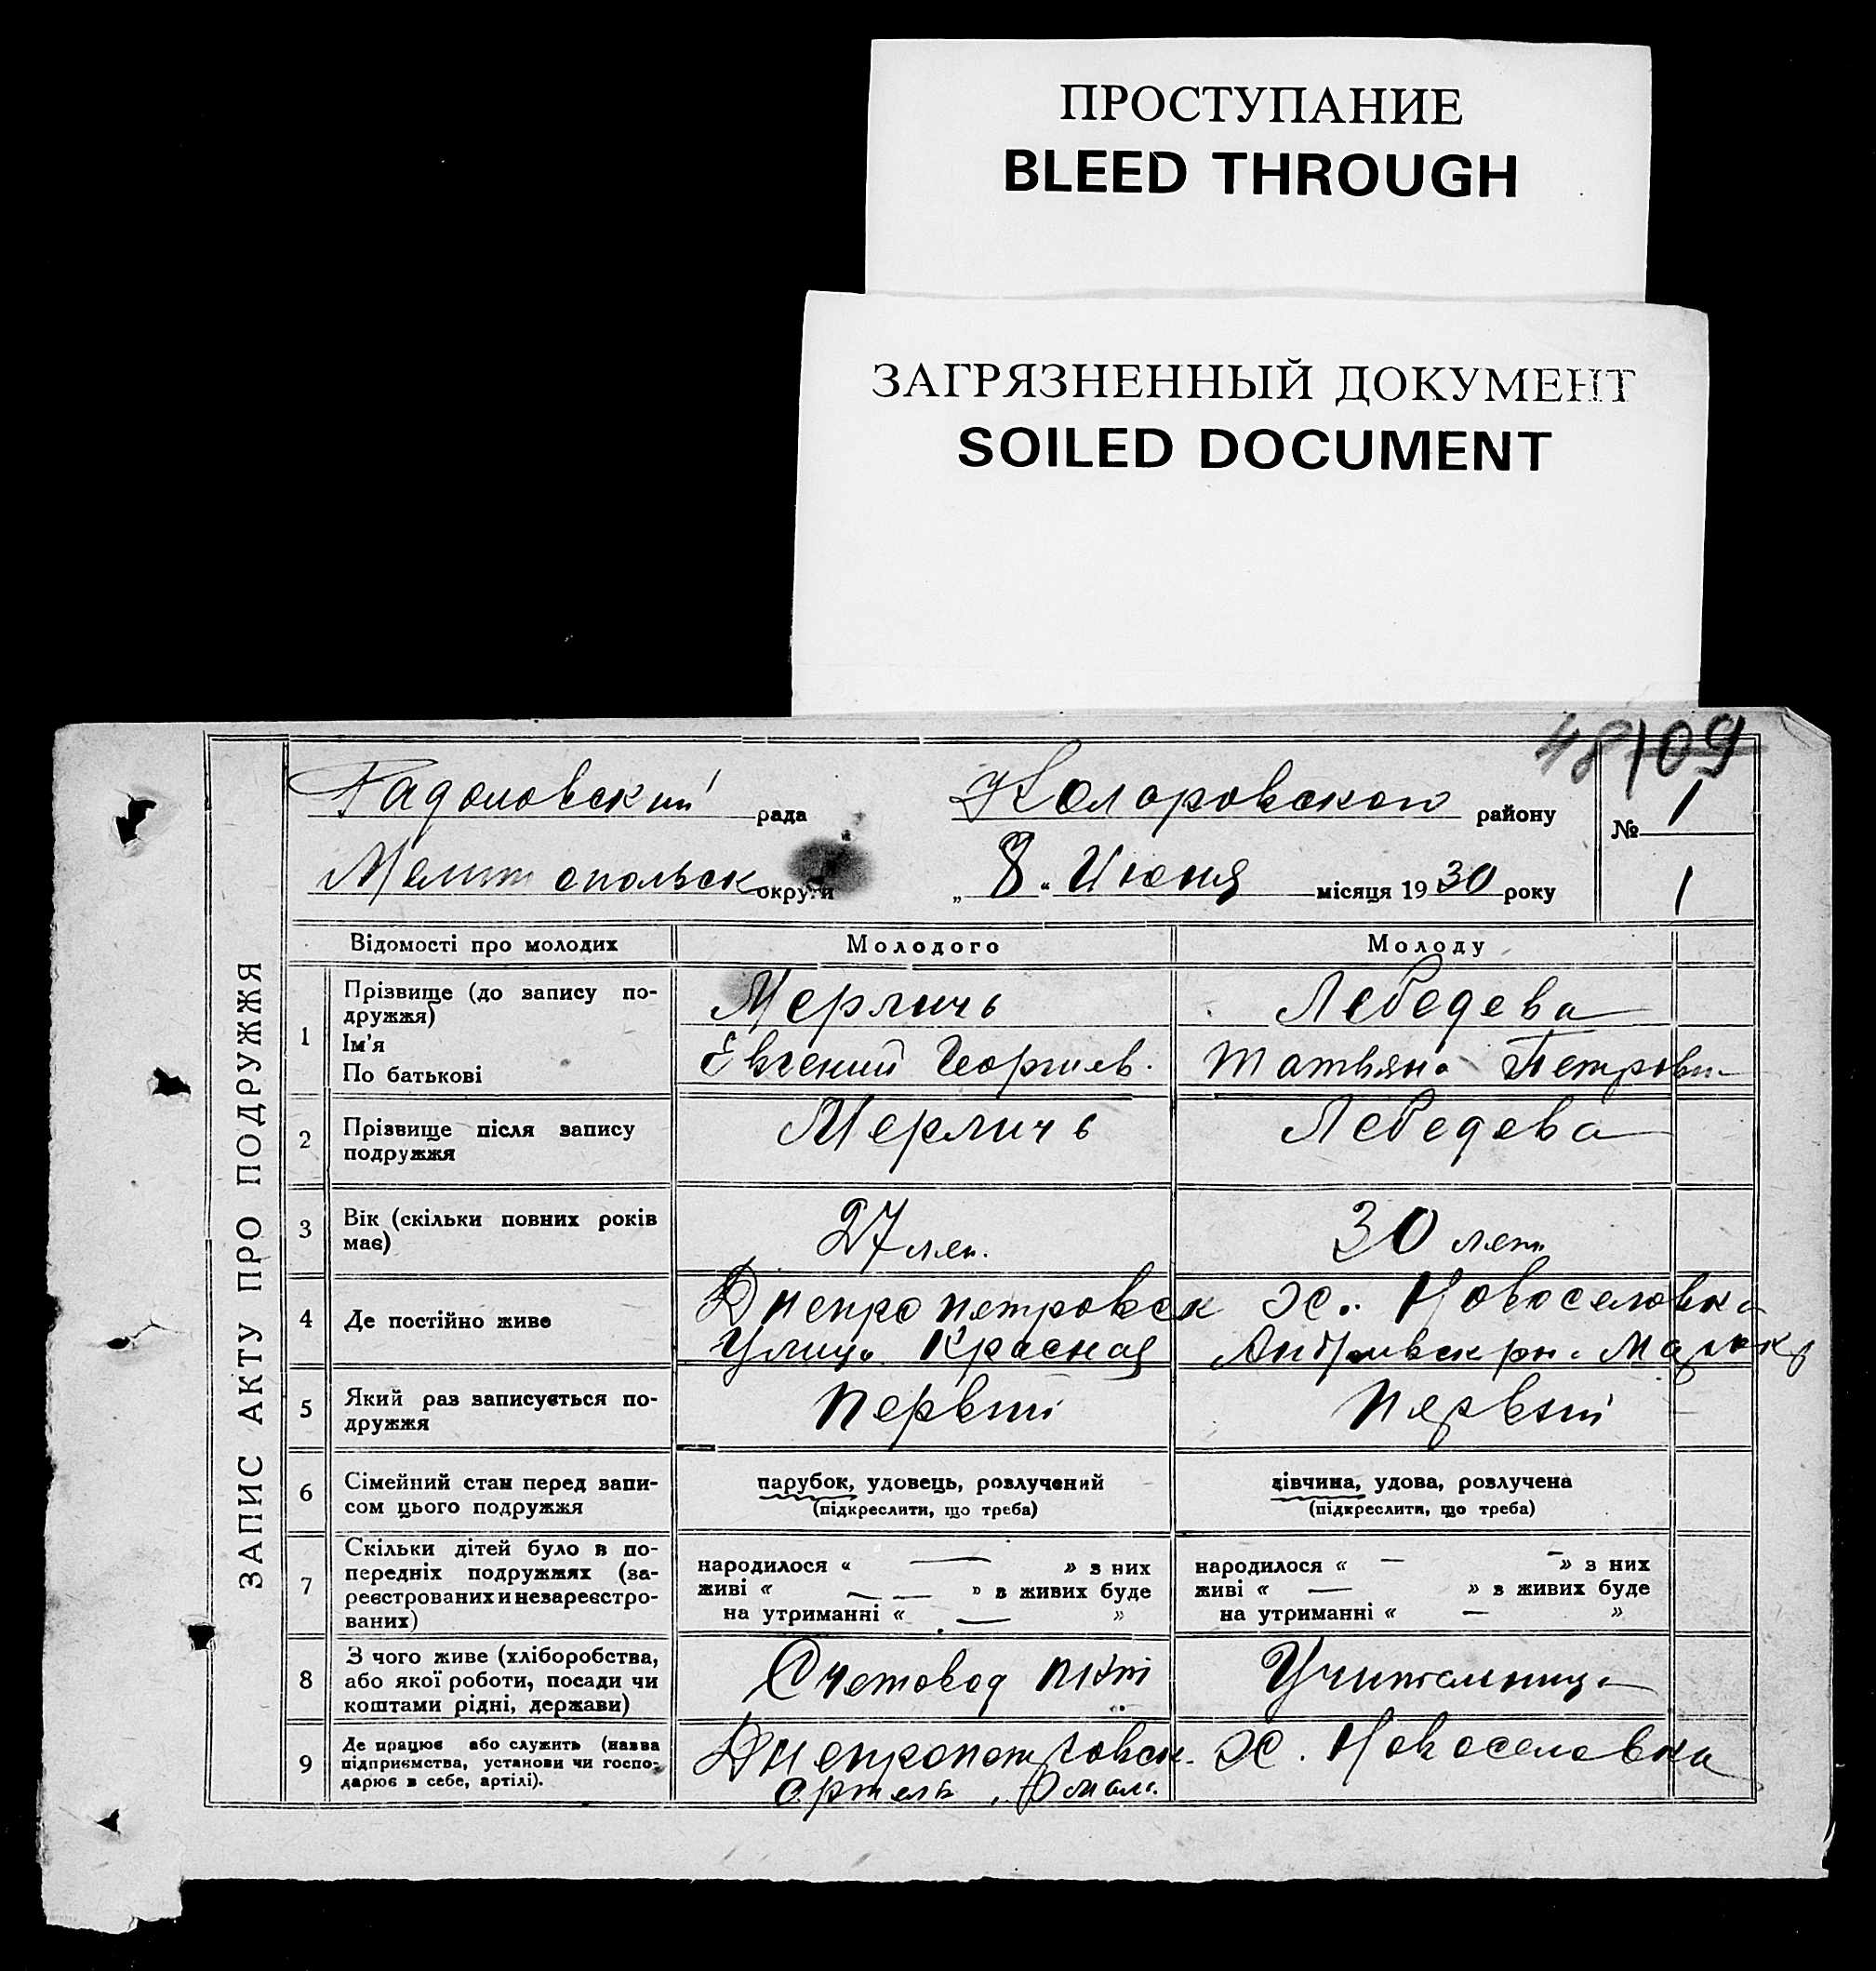 ПРОСТУПАНИЕ
BLEED THROUGH
ЗАГРЯЗНЕННЫЙ ДОКУМЕНТ
SOILED DOCUMENT
48 109
ЗАПИС АКТУ ПРО ПОДРУЖЖЯ
Радоловский рада Коларовского району № 1
округи „8“ Июня місяця 1930 року 1
Відомості про молодих Молодого Молоду
1 Прізвище (до запису по-
дружжя) Мерличь Лебедева
Ім'я
По батькові Евгений Георгиев. Татьяна
2 Прізвище після запису
подружжя Мерличь Лебедева
3 Вік (скільки повних років
має) 27 лет. 30 лет
4 Де постійно живе Днепропетровск х. Новоселовка
Улица Красная
5 Який раз записується по-
дружжя Первый Первый
6 Сімейний стан перед запи-
сом цього подружжя парубок, удовець, розлучений дівчина, удова, розлучена
(підкреслити, що треба) (підкреслити, що треба)
7 Скільки дітей було в по-
передніх подружжях (за-
реєстрованих и незареєстро-
ваних)
народилося « — » з них народилося « — — » з них
живі « — — » в живих буде живі « — » в живих буде
на утриманні « — » на утриманні « — »
8 З чого живе (хліборобства,
або якої роботи, посади чи
коштами рідні, держави) Счетовод Учительница
9 Де працює або служить (назва
підприємства, установи чи госпо-
дарює в себе, артілі). Днепропетровск. х. Новоселовка
артель